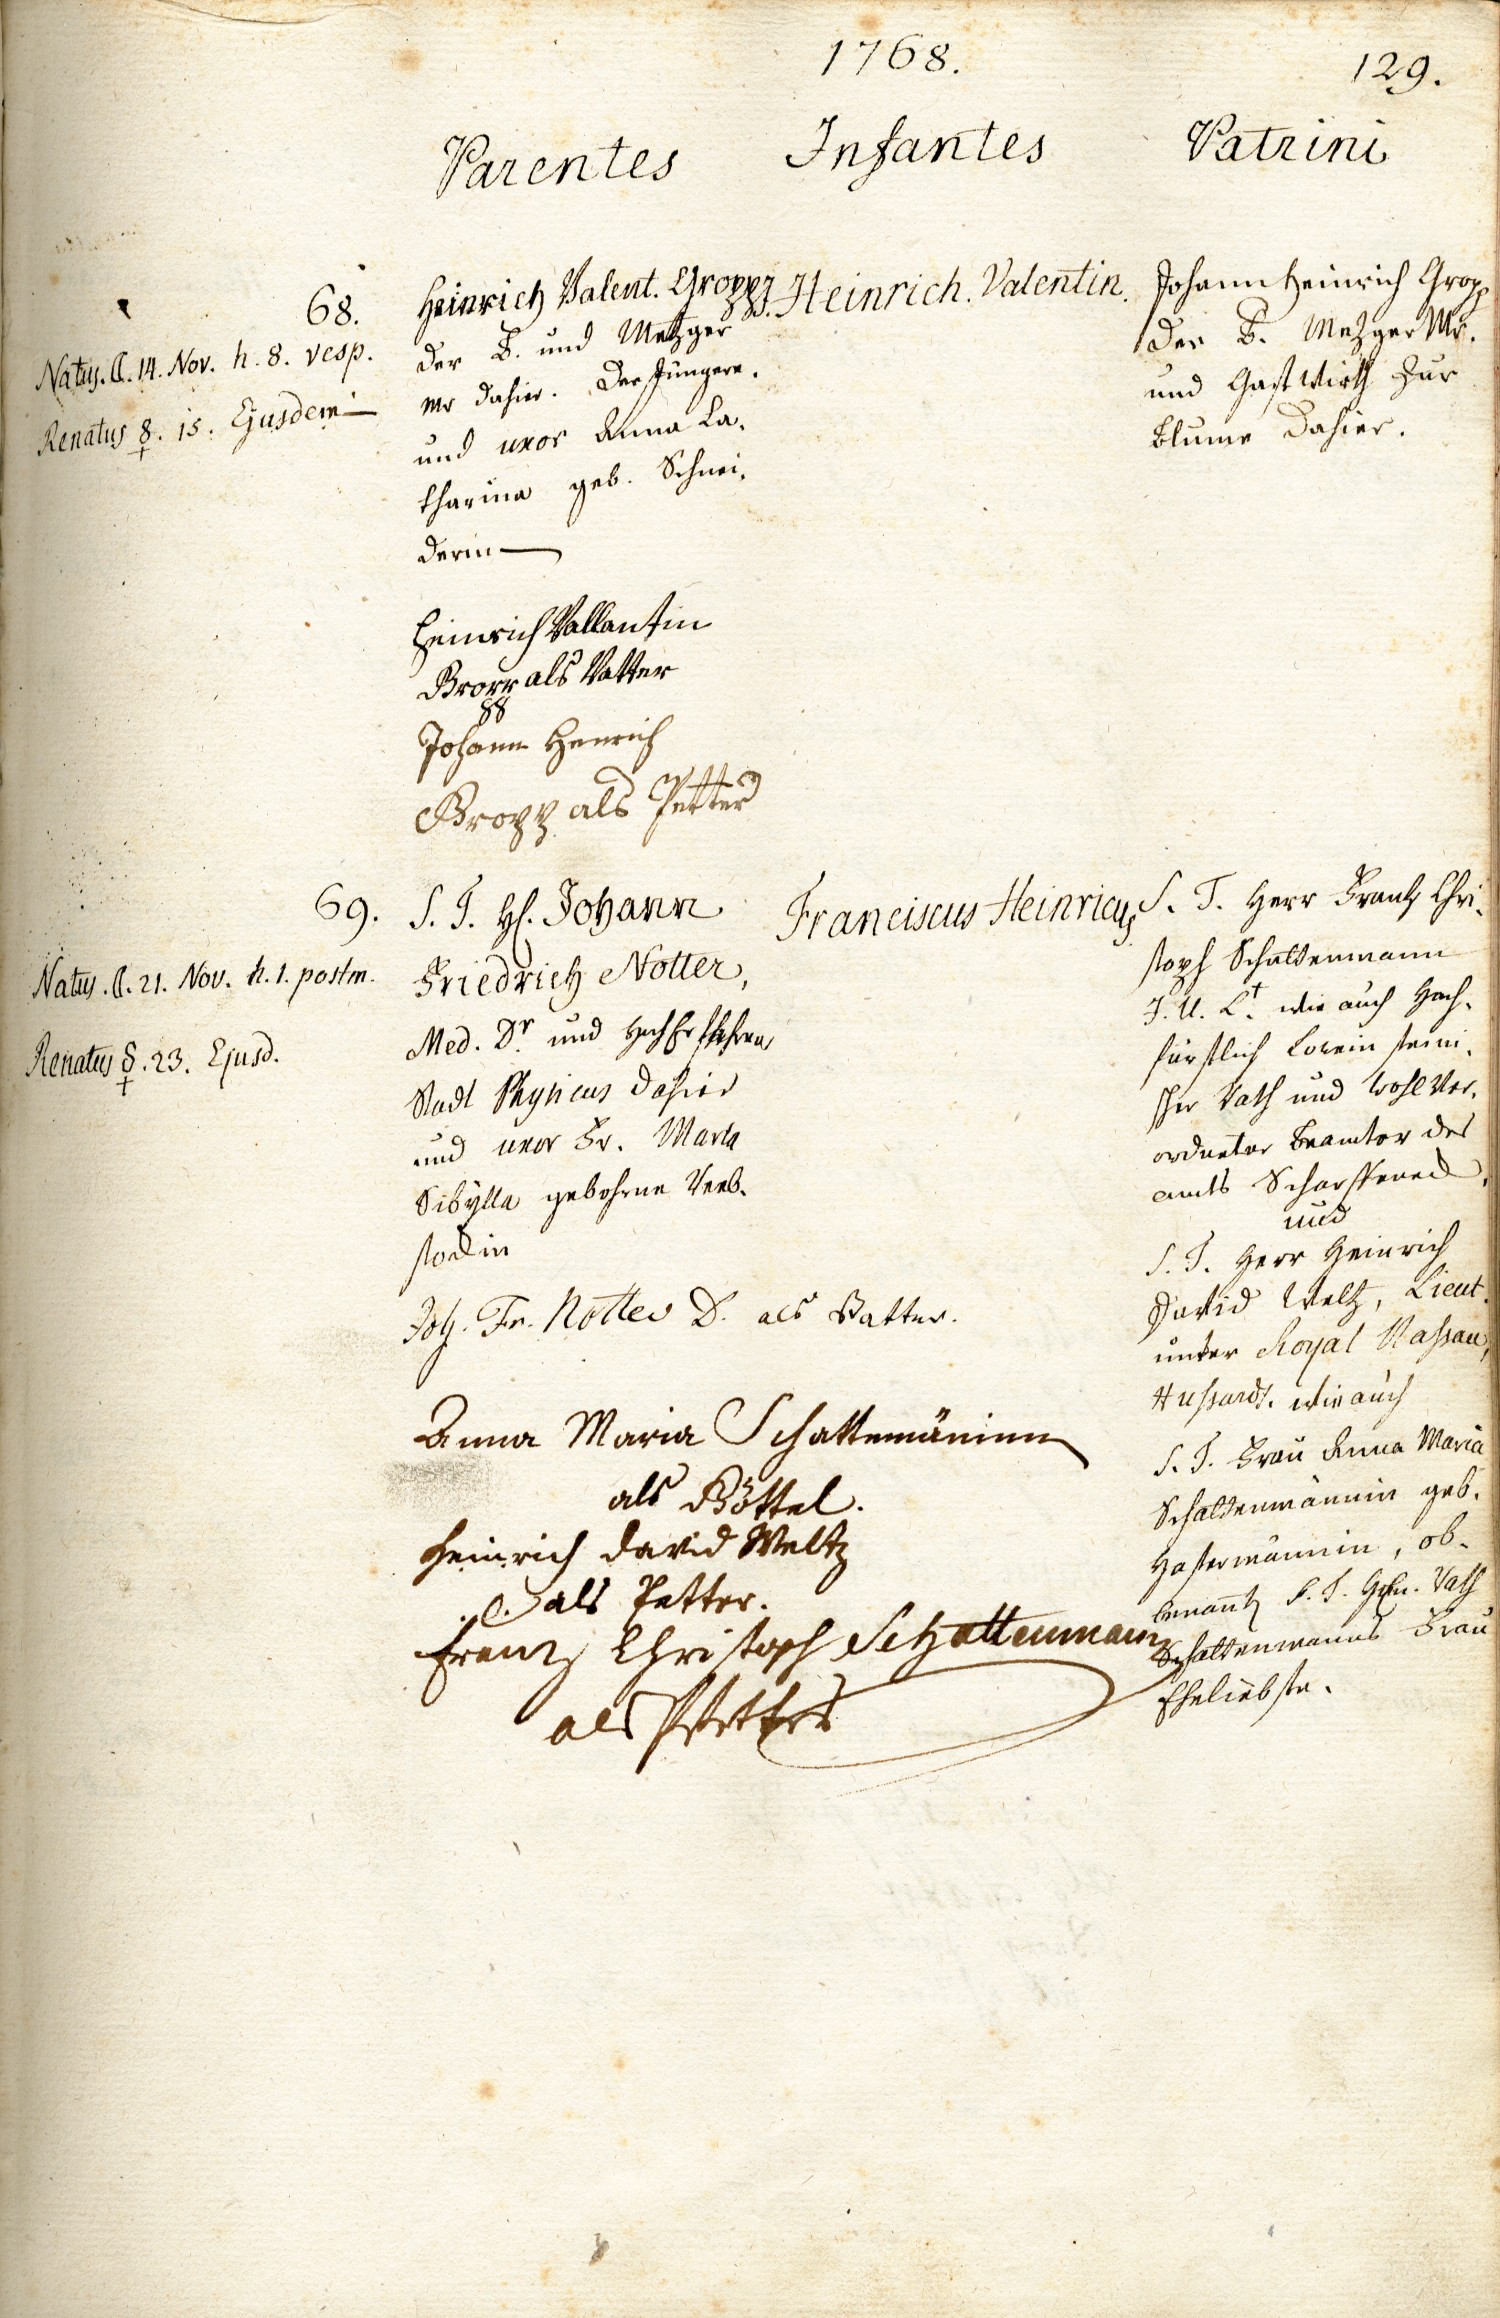 1768.
129.
Parentes
Infantes
Patrini
68.
Natus. ☾. 14. Nov. h. 8. vesp.
Renatus ☿. 15. Ejusdem
Heinrich Valent. Gropp
der B. und Metzger
Mr dahier. Der Jüngere.
und uxor Anna Ca-
tharina geb. Schnei-
derin
Heinrich. Valentin.
Johann Heinrich Gropp
der B. Metzger Mr.
und Gast Wirth Zur
Blume Dahier.
Heinrich Vallantin
Gropp als Vatter
Johann Henrich
Gropp als Petter
69.
Natus. ☾. 21. Nov. h. 1. postm.
Renatus ☿. 23. Ejusd.
S. T. H. Johann
Friedrich Notter,
Med. Dr und
Stadt Physicus dahier
und uxor Fr. Maria
Sibÿlla gebohrne Verb-
stockin
Franciscus Heinricus
S. T. Herr Frantz Chri-
stoph Schattenmann
J. U. Lt. wie auch Hoch-
fürstlich Löwenstein-
scher Rath und wohl Ver-
ordneter Beamter des
amts Scharffeneck,
und
S. T. Herr Heinrich
David Weltz, Lieut.
unter Royal Nassau,
Hussards. wie auch
S. T. Frau Anna Maria
Schattenmännin geb.
Hastermännin, ob-
benantz S. T. Hrn. Rath
Schattenmanns Frau
Eheliebste.
Joh. Fr. Notter D. als Vatter.
Anna Maria Schattemäninn
als Göttel.
Heinrich David Weltz
als Petter.
Frantz Christoph Schattenmann
als Petter